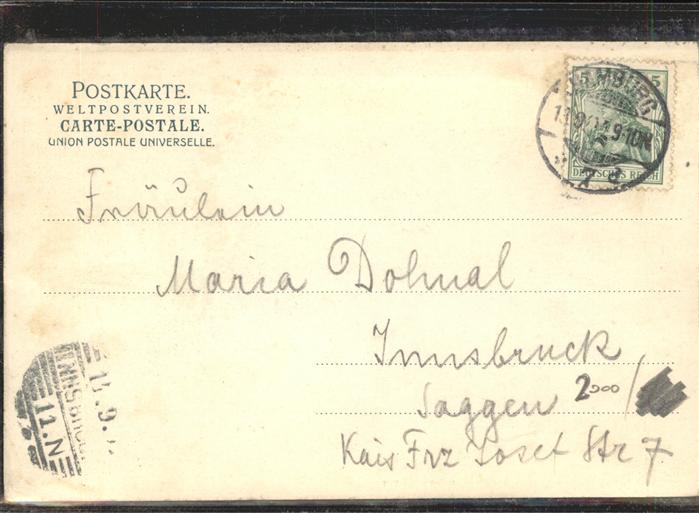 POSTKARTE.
WELTPOSTVEREIN.
CARTE-POSTALE.
UNION POSTALE UNIVERSELLE.
5 5
HAMBURG
9-10N
DEUTSCHES REICH
Fräulein
Maria Dolmal
Innsbruck
Saggen 2000/
Kais Frz Josef Str 7.
INNSBRUCK
11.N